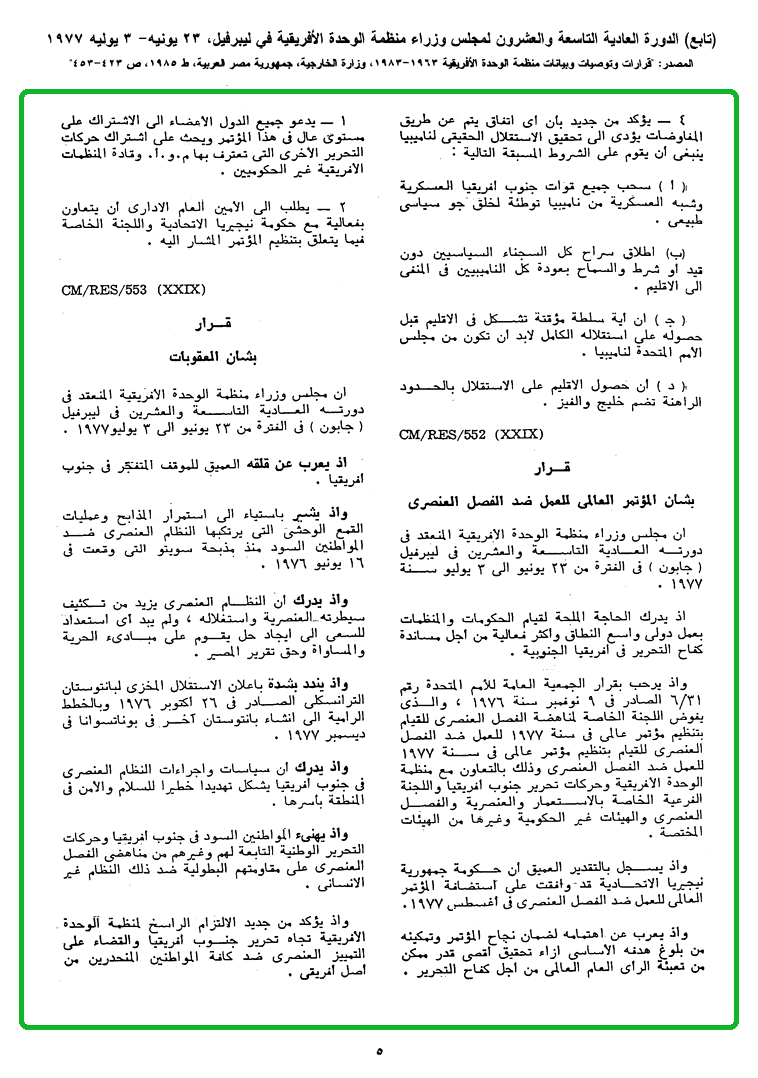 (تابع) الدورة العادية التاسعة والعشرون لمجلس وزراء منظمة الوحدة الأفريقية في ليبرفيل، ٢٣ يونيه- ٣ يوليه ١٩٧٧
المصدر: "قرارات وتوصيات وبيانات منظمة الوحدة الأفريقية ١٩٦٣-١٩٨٣، وزارة الخارجية، جمهورية مصر العربية، ط ١٩٨٥، ص ٤٢٣-٤٥٣"
٤ ــ يؤكد من جديد بأن أى اتفاق يتم عن طريق
المفاوضات يؤدى الى تحقيق الاستقلال الحقيقى لناميبيا
ينبغى أن يقوم على الشروط المسبقة التالية :
( أ ) سحب جميع قوات جنوب أفريقيا العسكرية
وشبه العسكرية من ناميبيا توطئة لخلق جو سياسى
طبيعى .
(ب) اطلاق سراح كل السجناء السياسيين دون
قيد أو شرط والسماح بعودة كل الناميبيين فى المنفى
الى الاقليم .
( ج ) ان أية سلطة مؤقتة تشكل فى الاقليم قبل
حصوله على استقلاله الكامل لابد أن تكون من مجلس
الأمم المتحدة لناميبيا .
( د ) أن حصول الاقليم على الاستقلال بالحدود
الراهنة تضم خليج والفيز .
CM/RES/552 (XXIX)
قرار
بشأن المؤتمر العالمى للعمل ضد الفصل العنصرى
ان مجلس وزراء منظمة الوحدة الأفريقية المنعقد فى
دورته العادية التاسعة والعشرين فى ليبرفيل
( جابون ) فى الفترة من ٢٣ يونيو الى ٣ يوليو سنة
١٩٧٧ .
اذ يدرك الحاجة الملحة لقيام الحكومات والمنظمات
بعمل دولى واسع النطاق وأكثر فعالية من أجل مساندة
كفاح التحرير فى أفريقيا الجنوبية .
واذ يرحب بقرار الجمعية العامة للأمم المتحدة رقم
٦/٣١ الصادر فى ٩ نوفمبر سنة ١٩٧٦ ، والذى
يفوض اللجنة الخاصة لمناهضة الفصل العنصرى للقيام
بتنظيم مؤتمر عالمى فى سنة ١٩٧٧ للعمل ضد الفصل
العنصرى للقيام بتنظيم مؤتمر عالمى فى سنة ١٩٧٧
للعمل ضد الفصل العنصرى وذلك بالتعاون مع منظمة
الوحدة الأفريقية وحركات تحرير جنوب أفريقيا واللجنة
الفرعية الخاصة بالاستعمار والعنصرية والفصل
العنصرى والهيئات غير الحكومية وغيرها من الهيئات
المختصة .
واذ يسجل بالتقدير العميق أن حكومة جمهورية
نيجيريا الاتحادية قد وافقت على استضافة المؤتمر
العالمى للعمل ضد الفصل العنصرى فى أغسطس ١٩٧٧.
واذ يعرب عن اهتمامه لضمان نجاح المؤتمر وتمكينه
من بلوغ هدفه الأساسى ازاء تحقيق أقصى قدر ممكن
من تعبئة الرأى العام العالمى من أجل كفاح التحرير .
١ ــ يدعو جميع الدول الأعضاء الى الاشتراك على
مستوى عال فى هذا المؤتمر ويحث على اشتراك حركات
التحرير الأخرى التى تعترف بها م.و.أ. وقادة المنظمات
الأفريقية غير الحكوميين .
٢ ــ يطلب الى الأمين العام الادارى أن يتعاون
بفعالية مع حكومة نيجيريا الاتحادية واللجنة الخاصة
فيما يتعلق بتنظيم المؤتمر المشار اليه .
CM/RES/553 (XXIX)
قرار
بشأن العقوبات
ان مجلس وزراء منظمة الوحدة الأفريقية المنعقد فى
دورته العادية التاسعة والعشرين فى ليبرفيل
( جابون ) فى الفترة من ٢٣ يونيو الى ٣ يوليو١٩٧٧ .
اذ يعرب عن قلقه العميق للموقف المتفجر فى جنوب
أفريقيا .
واذ يشير باستياء الى استمرار المذابح وعمليات
القمع الوحشى التى يرتكبها النظام العنصرى ضد
المواطنين السود منذ مذبحة سويتو التى وقعت فى
١٦ يونيو ١٩٧٦ .
واذ يدرك أن النظام العنصرى يزيد من تكثيف
سيطرته العنصرية واستغلاله ، ولم يبد أى استعداد
للسعى الى ايجاد حل يقوم على مبادىء الحرية
والمساواة وحق تقرير المصير .
واذ يندد بشدة باعلان الاستقلال المخزى لبانتوستان
الترانسكى الصادر فى ٢٦ أكتوبر ١٩٧٦ وبالخطط
الرامية الى انشاء بانتوستان آخر فى بوتاتسوانا فى
ديسمبر ١٩٧٧ .
واذ يدرك أن سياسات واجراءات النظام العنصرى
فى جنوب أفريقيا يشكل تهديدا خطيرا للسلام والأمن فى
المنطقة بأسرها .
واذ يهنىء المواطنين السود فى جنوب أفريقيا وحركات
التحرير الوطنية التابعة لهم وغيرهم من مناهضى الفصل
العنصرى على مقاومتهم البطولية ضد ذلك النظام غير
الانسانى .
واذ يؤكد من جديد الالتزام الراسخ لمنظمة الوحدة
الأفريقية تجاه تحرير جنوب أفريقيا والقضاء على
التمييز العنصرى ضد كافة المواطنين المنحدرين من
أصل أفريقى .
٥